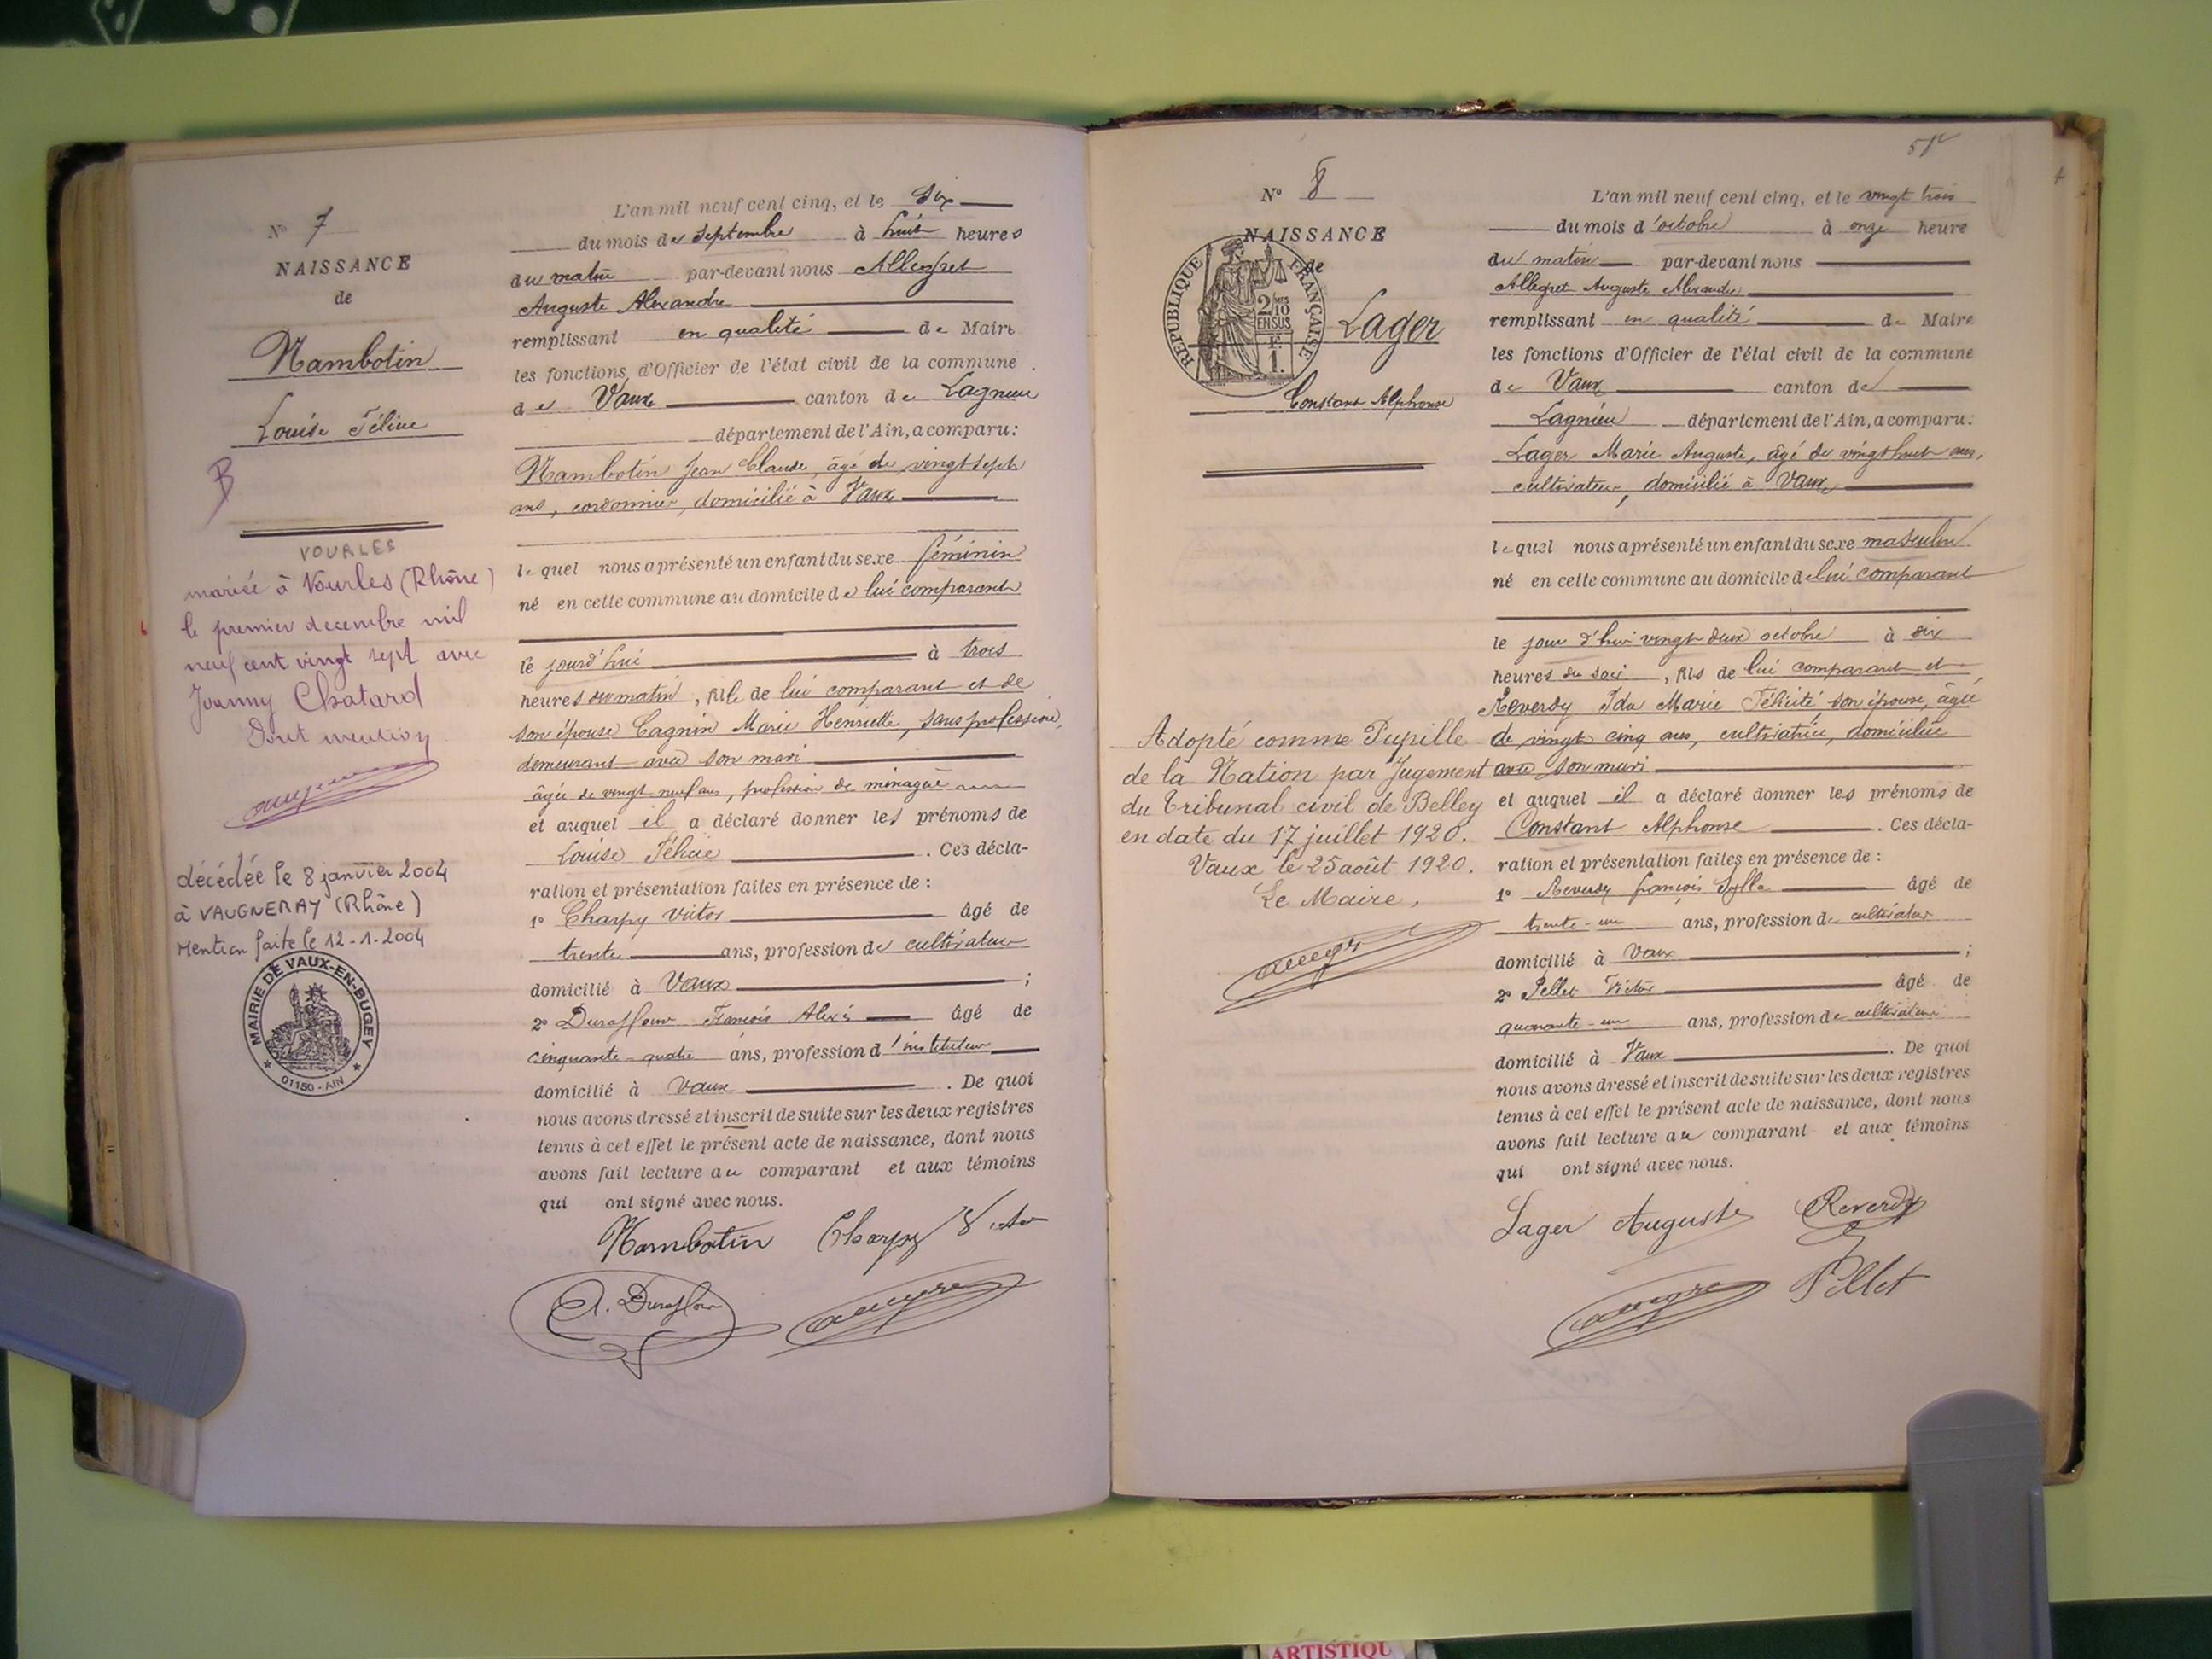 N° 7
NAISSANCE
de
Mambotin
Louise Féline
B
VOURLES
mariée à Vourles (Rhône)
le premier decembre mil
neuf cent vingt sept avec
Joanny Chatard
Dont mention
décédée le 8 janvier 2004
à VAUGNERAY (Rhône)
Mention faite le 12-1-2004
MAIRIE DE VAUX-EN-BUGEY
01150 - AIN
L'an mil neuf cent cinq, et le six
du mois de Septembre à huit heures
du matin par-devant nous Allegret
Auguste Alexandre
remplissant en qualité de Maire
les fonctions d'Officier de l'état civil de la commune
de Vaux canton de Lagnieu
département de l'Ain, a comparu:
Mambotin Jean Claude, âgé de vingt sept
ans, cordonnier, domicilié à Vaux
lequel nous a présenté un enfant du sexe féminin
né en cette commune au domicile de lui comparant
le jourd'hui à trois
heures du matin, fille de lui comparant et de
son épouse Cagnin Marie Henriette, sans profession,
demeurant avec son mari
âgée de vingt neuf ans, profession de ménagère
et auquel il a déclaré donner les prénoms de
Louise Féline . Ces décla-
ration et présentation faites en présence de :
1° Charpy Victor âgé de
trente ans, profession de cultivateur
domicilié à Vaux ;
2° Duraffour François Alexis âgé de
cinquante-quatre ans, profession d'instituteur
domicilié à Vaux . De quoi
nous avons dressé et inscrit de suite sur les deux registres
tenus à cet effet le présent acte de naissance, dont nous
avons fait lecture au comparant et aux témoins
qui ont signé avec nous.
Mambotin Charpy Victor
A. Duraffour
N° 8
NAISSANCE
de
RÉPUBLIQUE FRANÇAISE
2/10
EN SUS
F.
1.
Lager
Constant Alphonse
Adopté comme Pupille
de la Nation par Jugement
du Tribunal civil de Belley
en date du 17 juillet 1920.
Vaux le 25 août 1920.
Le Maire,
L'an mil neuf cent cinq, et le vingt trois
du mois d'octobre à onze heure
du matin par-devant nous
Allegret Auguste Alexandre
remplissant en qualité de Maire
les fonctions d'Officier de l'état civil de la commune
de Vaux canton de
Lagnieu département de l'Ain, a comparu:
Lager Marie Auguste, âgé de vingt huit ans,
cultivateur, domicilié à Vaux
lequel nous a présenté un enfant du sexe masculin
né en cette commune au domicile de lui comparant
le jour d'hier vingt deux octobre à six
heures du soir, fils de lui comparant et
Reverdy Ida Marie Félicité son épouse, âgée
de vingt cinq ans, cultivatrice, domiciliée
avec son mari
et auquel il a déclaré donner les prénoms de
Constant Alphonse . Ces décla-
ration et présentation faites en présence de :
1° Reverdy François Sylla âgé de
trente-un ans, profession de cultivateur
domicilié à Vaux ;
2° Pellet Victor âgé de
quarante-un ans, profession de cultivateur
domicilié à Vaux . De quoi
nous avons dressé et inscrit de suite sur les deux registres
tenus à cet effet le présent acte de naissance, dont nous
avons fait lecture au comparant et aux témoins
qui ont signé avec nous.
Lager Auguste Reverdy
Pellet
ARTISTIQU